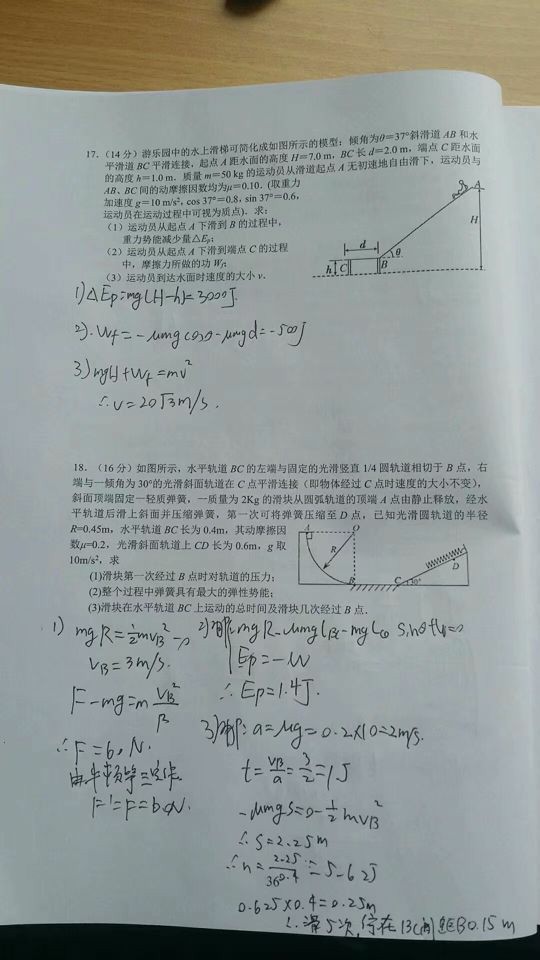 17.（14分）游乐园中的水上滑梯可简化成如图所示的模型：倾角为θ=37°斜滑道 AB 和水
平滑道 BC 平滑连接，起点 A 距水面的高度 H=7.0 m，BC 长 d=2.0 m，端点 C 距水面
的高度 h=1.0 m. 质量 m=50 kg 的运动员从滑道起点 A 无初速地自由滑下，运动员与
AB、BC 间的动摩擦因数均为μ=0.10.（取重力
加速度 g=10 m/s²，cos 37°=0.8，sin 37°=0.6，
运动员在运动过程中可视为质点）. 求：
（1）运动员从起点 A 下滑到 B 的过程中，
重力势能减少量△Eₚ；
（2）运动员从起点 A 下滑到端点 C 的过程
中，摩擦力所做的功 Wf；
（3）运动员到达水面时速度的大小 v.
A
H
d
h
C
B
θ
1) △Ep=mg(H-h)=3000J.
2). Wf=-μmg cosθ-μmgd=-500J
3) mgH+Wf=mv²
∴v=20√3m/s.
18. （16 分）如图所示，水平轨道 BC 的左端与固定的光滑竖直 1/4 圆轨道相切于 B 点，右
端与一倾角为 30°的光滑斜面轨道在 C 点平滑连接（即物体经过 C 点时速度的大小不变），
斜面顶端固定一轻质弹簧，一质量为 2Kg 的滑块从圆弧轨道的顶端 A 点由静止释放，经水
平轨道后滑上斜面并压缩弹簧，第一次可将弹簧压缩至 D 点，已知光滑圆轨道的半径
R=0.45m，水平轨道 BC 长为 0.4m，其动摩擦因
数μ=0.2，光滑斜面轨道上 CD 长为 0.6m，g 取
10m/s²，求
(1)滑块第一次经过 B 点时对轨道的压力；
(2)整个过程中弹簧具有最大的弹性势能；
(3)滑块在水平轨道 BC 上运动的总时间及滑块几次经过 B 点.
A
O
R
B
C
30°
D
1) mgR=½mvB²-0
vB=3m/s.
F-mg=m vB²/R
∴F=60N.
F'=F=60N.
mgR-μmgLBC-mgLCD sinθ+W=0
Ep=-W
∴Ep=1.4J.
a=μg=0.2×10=2m/s.
t=vB/a=3/2=1.5
-μmgs=0-½mvB²
∴s=2.25m
=5.625
0.625×0.4=0.25m
∴滑5次,停在BC间距B0.15m